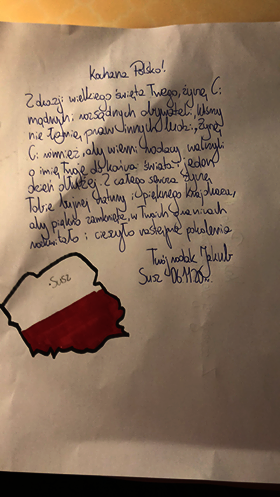 Kochana Polsko!
Z okazji wielkiego święta Twego, życzę Ci
mądrych i rozsądnych obywateli, którzy
nie łamią praw innych ludzi, życzę
Ci również, aby wierni rodacy walczyli
o imię Twoje do końca świata i jeden
dzień dłużej. Z całego serca życzę
Tobie bujnej fauny i pięknego krajobrazu,
aby piękno zamknięte w Twoich granicach
i cieszyło następne pokolenia
Twój rodak Jakub
Susz 06.11.20r.
Susz